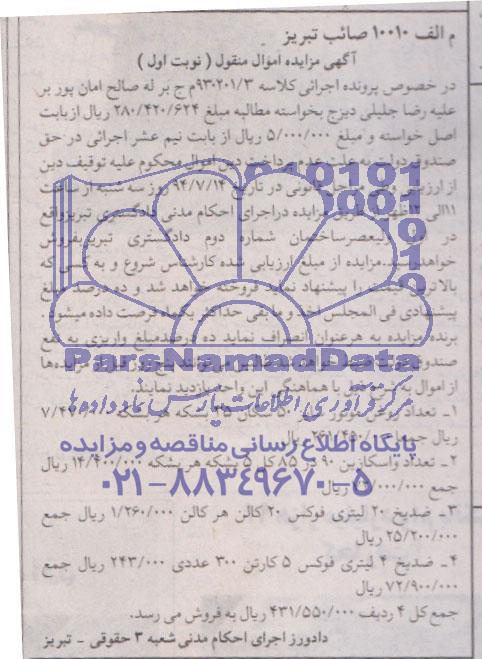 م الف ۱۰۰۱۰ صائب تبریز
آگهی مزایده اموال منقول ( نوبت اول )
در خصوص پرونده اجرائی کلاسه ۹۳۰۲۰۱/۳م ج بر له صالح امان پور بر
علیه رضا جلیلی دیزج بخواسته مطالبه مبلغ ۲۸۰/۴۲۰/۶۲۴ ریال از بابت
اصل خواسته و مبلغ ۵/۰۰۰/۰۰۰ ریال از بابت نیم عشر اجرائی در حق
صندوق دولت به علت عدم پرداخت دین اموال محکوم علیه توقیف دین
از ارزیابی وطی مراحل قانونی در تاریخ ۹۴/۷/۱۴ روز سه شنبه از ساعت
۱۱الی ۱۲ظهر از طریق مزایده دراجرای احکام مدنی دادگستری تبریزواقع
در ولیعصرساختمان شماره دوم دادگستری تبریزبفروش
خواهد رسید.مزایده از مبلغ ارزیابی شده کارشناس شروع و به کسی که
بالاترین قیمت را پیشنهاد نماید فروخته خواهد شد و ده درصد مبلغ
پیشنهادی فی المجلس اخذ و مابقی حداکثر یکماه فرصت داده میشود.
برنده مزایده به هرعنوان انصراف نماید ده درصدمبلغ واریزی به نفع
صندوق دولت ضبط خواهد شد پنج روز قبل از مزایده
از اموال با هماهنگی این واحد بازدید نمایند.
ParsNamadData
مرکز فرآوری اطلاعات پارس نماد داده ها
۱ـ تعداد بشکه هر بشکه
ریال جمع ریال
پایگاه اطلاع رسانی مناقصه و مزایده
۲ـ تعداد واسکازین ۹۰ در ۸۵ کل ۵ بشکه هر بشکه ۱۴/۴۰۰/۰۰۰ ریال
جمع ریال
۰۲۱-۸۸۳۴۹۶۷۰-۵
۳ـ ضدیخ ۲۰ لیتری فوکس ۲۰ کالن هر کالن ۱/۲۶۰/۰۰۰ ریال جمع
۲۵/۲۰۰/۰۰۰ ریال
۴ـ ضدیخ ۴ لیتری فوکس ۵ کارتن ۳۰۰ عددی ۲۴۳/۰۰۰ ریال جمع
۷۲/۹۰۰/۰۰۰ ریال
جمع کل ۴ ردیف ۴۳۱/۵۵۰/۰۰۰ ریال به فروش می رسد.
دادورز اجرای احکام مدنی شعبه ۳ حقوقی - تبریز